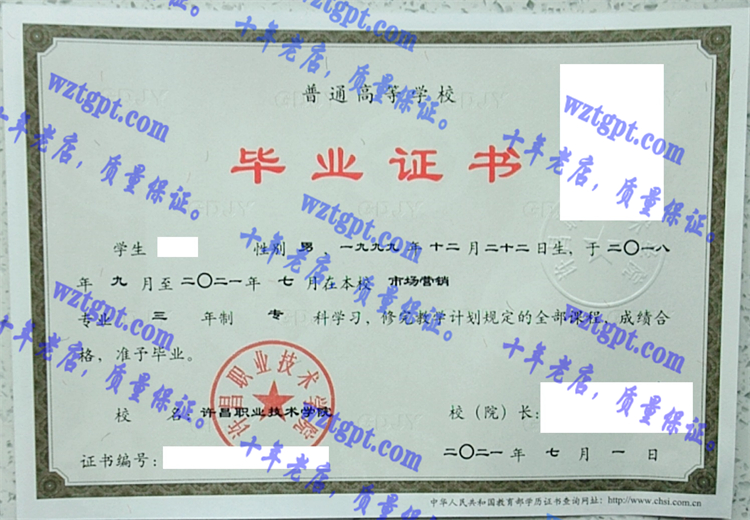 普通高等学校
毕业证书
学生 性别 男 、一九九九年十二月二十二日生、于二〇一八
年 九 月至二〇二一年 七 月在本校 市场营销
专业 三 年制 专 科学习，修完教学计划规定的全部课程，成绩合
格，准予毕业。
校 名 许昌职业技术学院 校（院）长：
证书编号： 二〇二一年 七 月 一 日
许昌职业技术学院
中华人民共和国教育部学历证书查询网址：http://www.chsi.com.cn
wztgpt.com
十年老店，质量保证。
wztgpt.com
十年老店，质量保证。
wztgpt.com
十年老店，质量保证。
wztgpt.com
十年老店，质量保证。
wztgpt.com
十年老店，质量保证。
wztgpt.com
十年老店，质量保证。
wztgpt.com
十年老店，质量保证。
wztgpt.com
十年老店，质量保证。